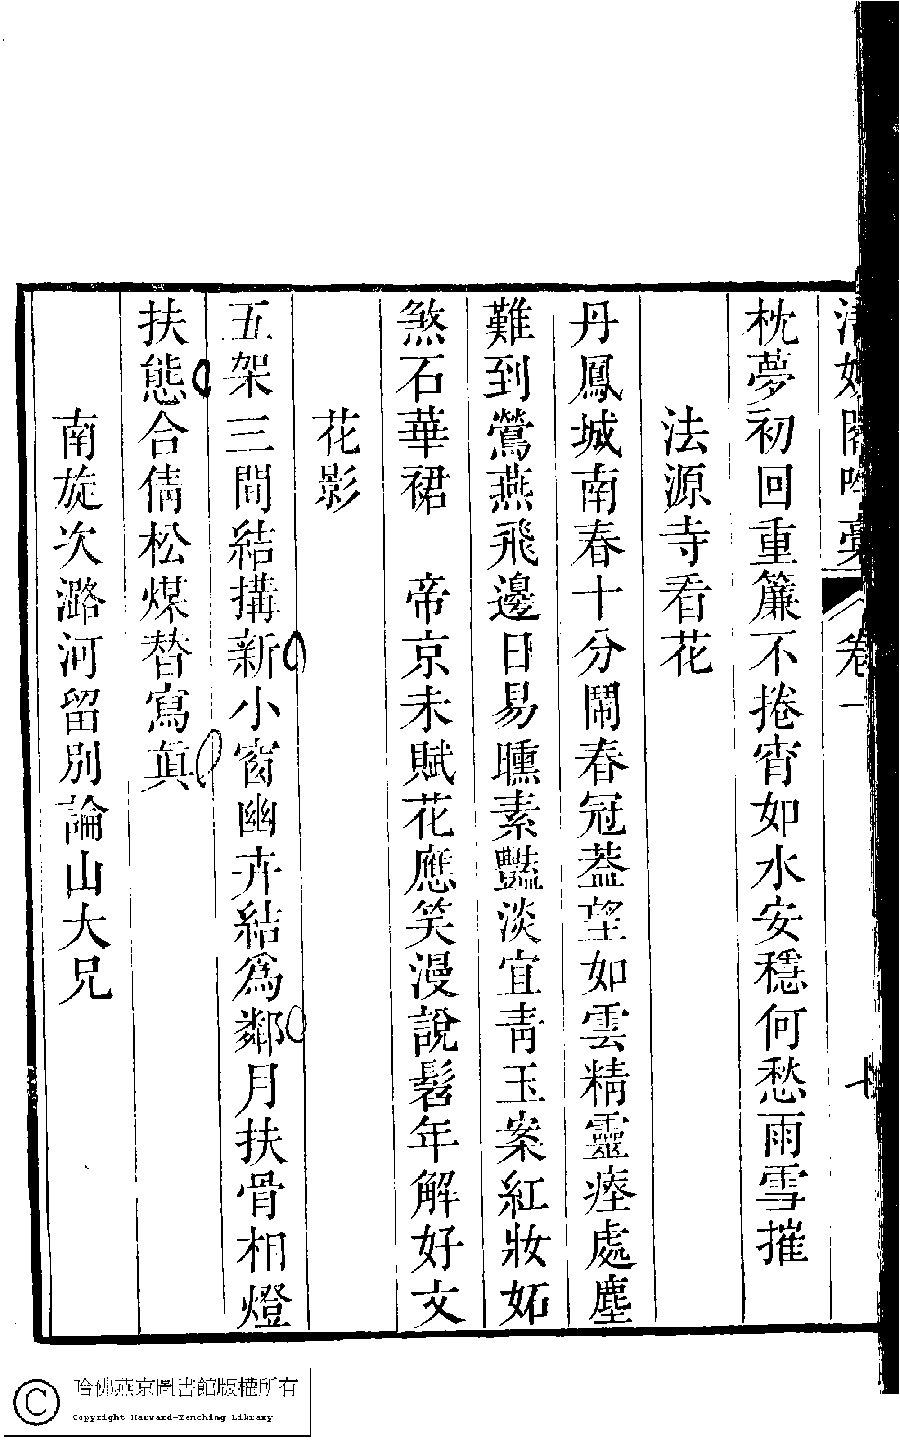 枕夢初回重簾不捲宵如水安穩何愁雨雪摧
法源寺看花
丹鳳城南春十分鬧春冠蓋望如雲精靈瘞處塵
難到鶯燕飛邊日易曛素豔淡宜青玉案紅妝妬
煞石華裙　帝京未賦花應笑漫說髫年解好文
花影
五架三間結搆新小窗幽卉結爲鄰月扶骨相燈
扶態合倩松煤替寫眞
南旋次潞河留別論山大兄
卷一
哈佛燕京圖書館版權所有
Copyright Harvard-Yenching Library